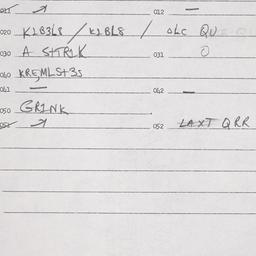 011 012 —
020 K1B3L8 / K1BL8 / OLC QU
030 A STR1K 031 O
060 KREMLSt3s
061 — 062 —
050 GRINK
051 052 LAXT QRR